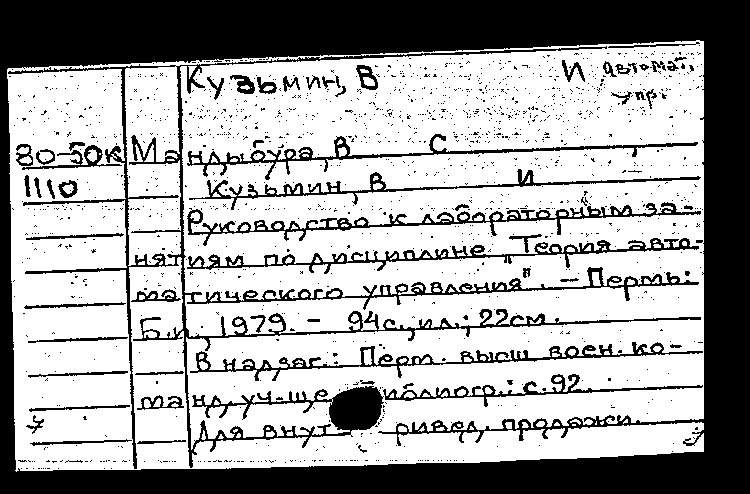 Кузьмин, В И автомат.
упр.
80-50к Мандыбура, В С
1110 Кузьмин, В И
Руководство к лабораторным за-
нятиям по дисциплине „Теория авто-
матического управления". — Пермь:
Б.и., 1979. — 94с., ил.; 22см.
В надзаг.: Перм. высш воен. ко-
манд. уч-ще иблиогр.: с.92.
Для внут ривед. продажи.